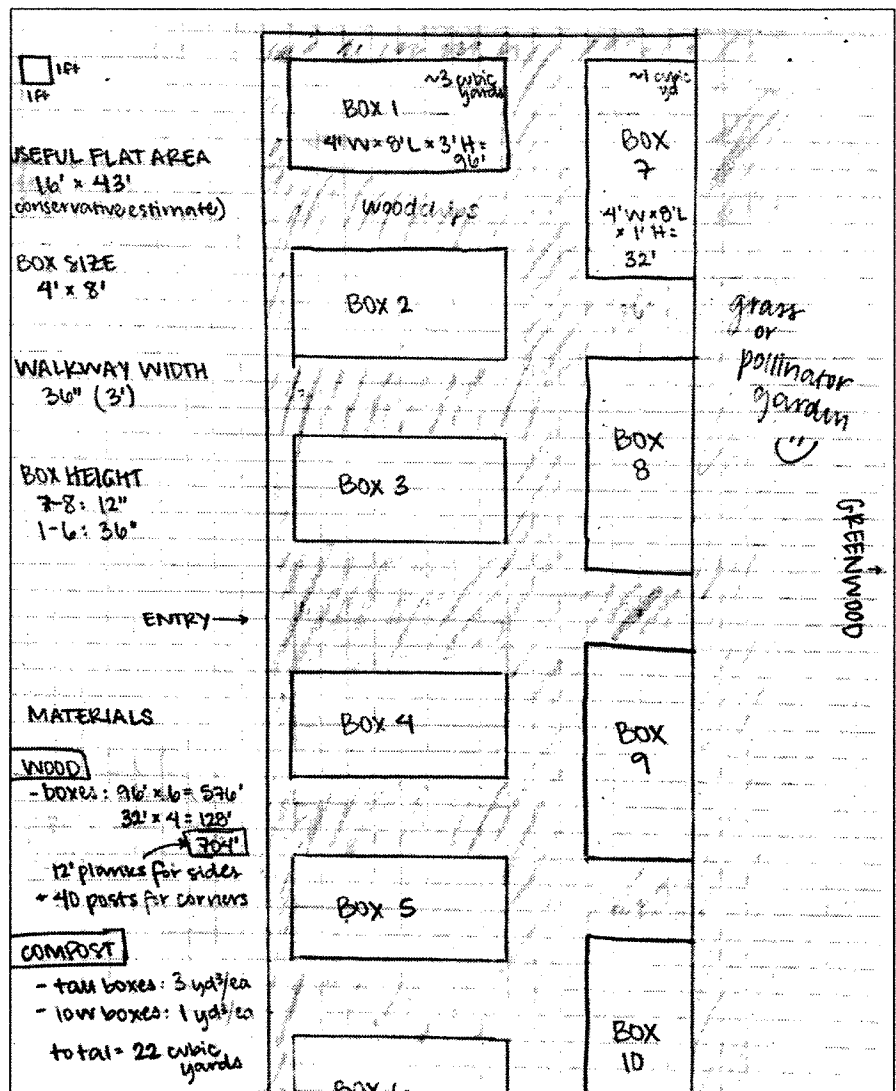 1Ft
1Ft
USEFUL FLAT AREA
16' × 43'
(conservative estimate)
BOX SIZE
4' × 8'
WALKWAY WIDTH
36" (3')
BOX HEIGHT
7-8: 12"
1-6: 36"
ENTRY →
MATERIALS
WOOD
- boxes: 96' × 6 = 576'
32' × 4 = 128'
704'
12' planks for sides
+ 40 posts for corners
COMPOST
- tall boxes: 3 yd³/ea
- low boxes: 1 yd³/ea
total = 22 cubic
yards
~3 cubic
yards
BOX 1
4'W × 8'L × 3'H =
96'
woodchips
BOX 2
BOX 3
BOX 4
BOX 5
BOX 6
~1 cubic
yd
BOX
7
4'W × 8'L
× 1'H =
32'
BOX
8
BOX
9
BOX
10
grass
or
pollinator
garden
GREENWOOD →